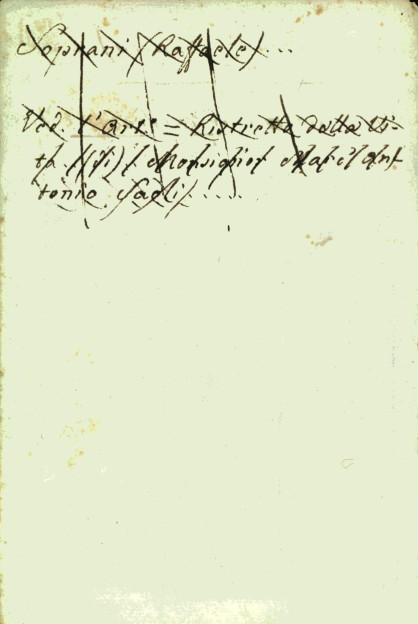 Soprani Raffaele ...
Ved. l'Art.° = Ristretto della Vi-
ta (di) Monsignor Marc'An-
tonio Saoli .....